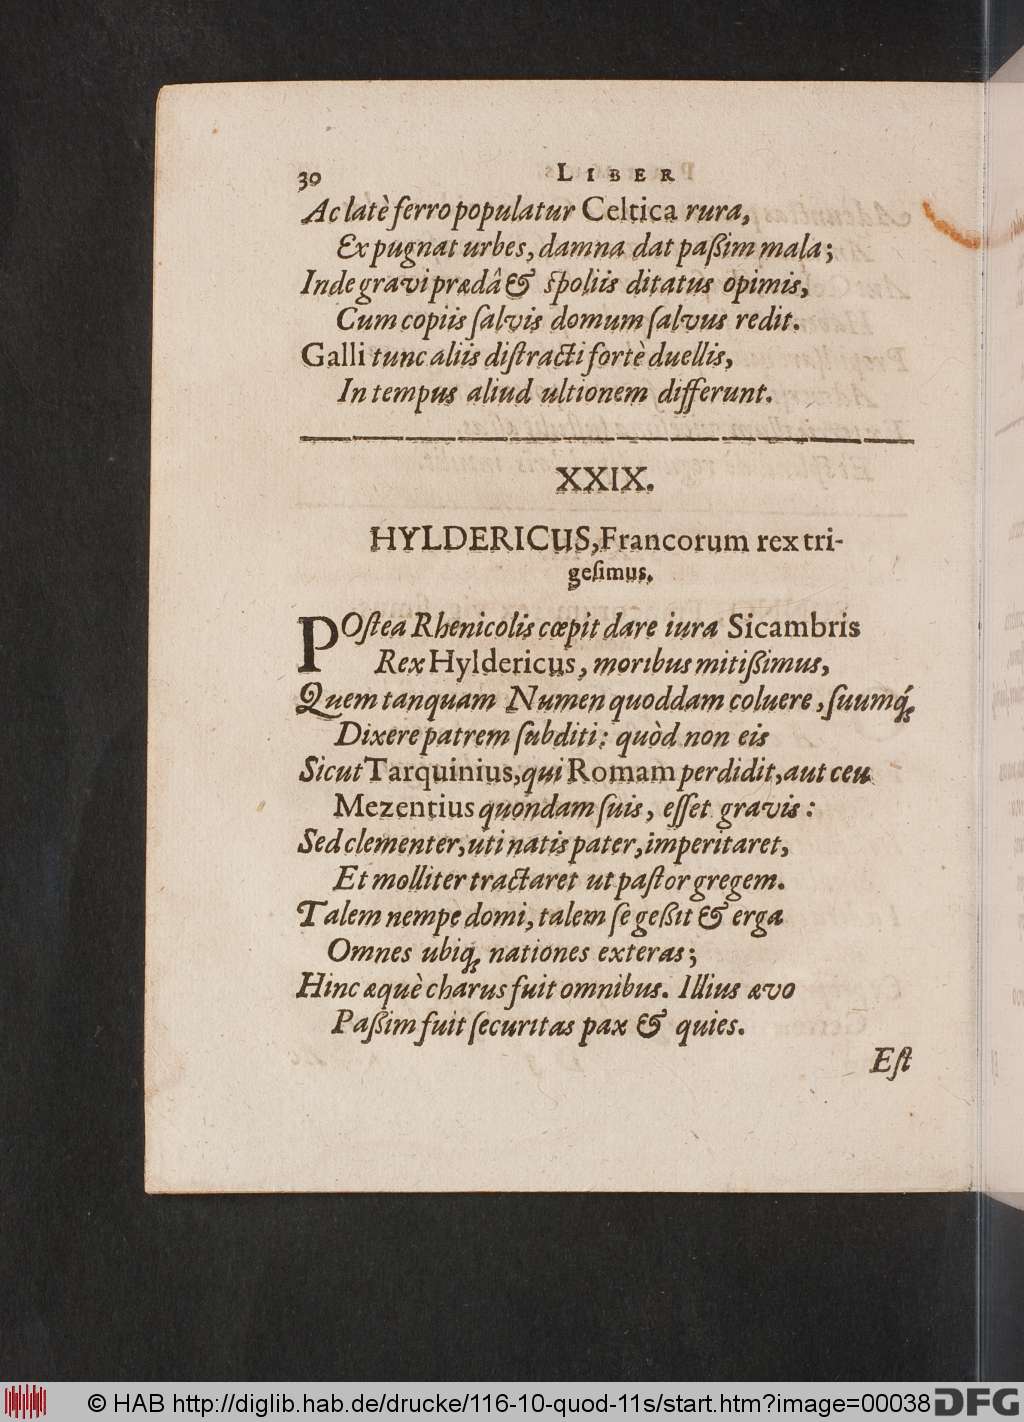 30 LIBER
Ac latè ferro populatur Celtica rura,
Expugnat urbes, damna dat paßim mala;
Inde gravi prædâ & ſpoliis ditatus opimis,
Cum copiis ſalvis domum ſalvus redit.
Galli tunc aliis diſtracti fortè duellis,
In tempus aliud ultionem differunt.
XXIX.
HYLDERICUS, Francorum rex tri-
geſimus.
POſtea Rhenicolis cœpit dare iura Sicambris
Rex Hyldericus, moribus mitißimus,
Quem tanquam Numen quoddam coluere, ſuumq́;
Dixere patrem ſubditi: quòd non eis
Sicut Tarquinius, qui Romam perdidit, aut ceu
Mezentius quondam ſuis, eſſet gravis:
Sed clementer, uti natis pater, imperitaret,
Et molliter tractaret ut paſtor gregem.
Talem nempe domi, talem ſe geßit & erga
Omnes ubiq; nationes exteras;
Hinc æquè charus fuit omnibus. Illius ævo
Paßim fuit ſecuritas pax & quies.
Eſt
© HAB http://diglib.hab.de/drucke/116-10-quod-11s/start.htm?image=00038 DFG